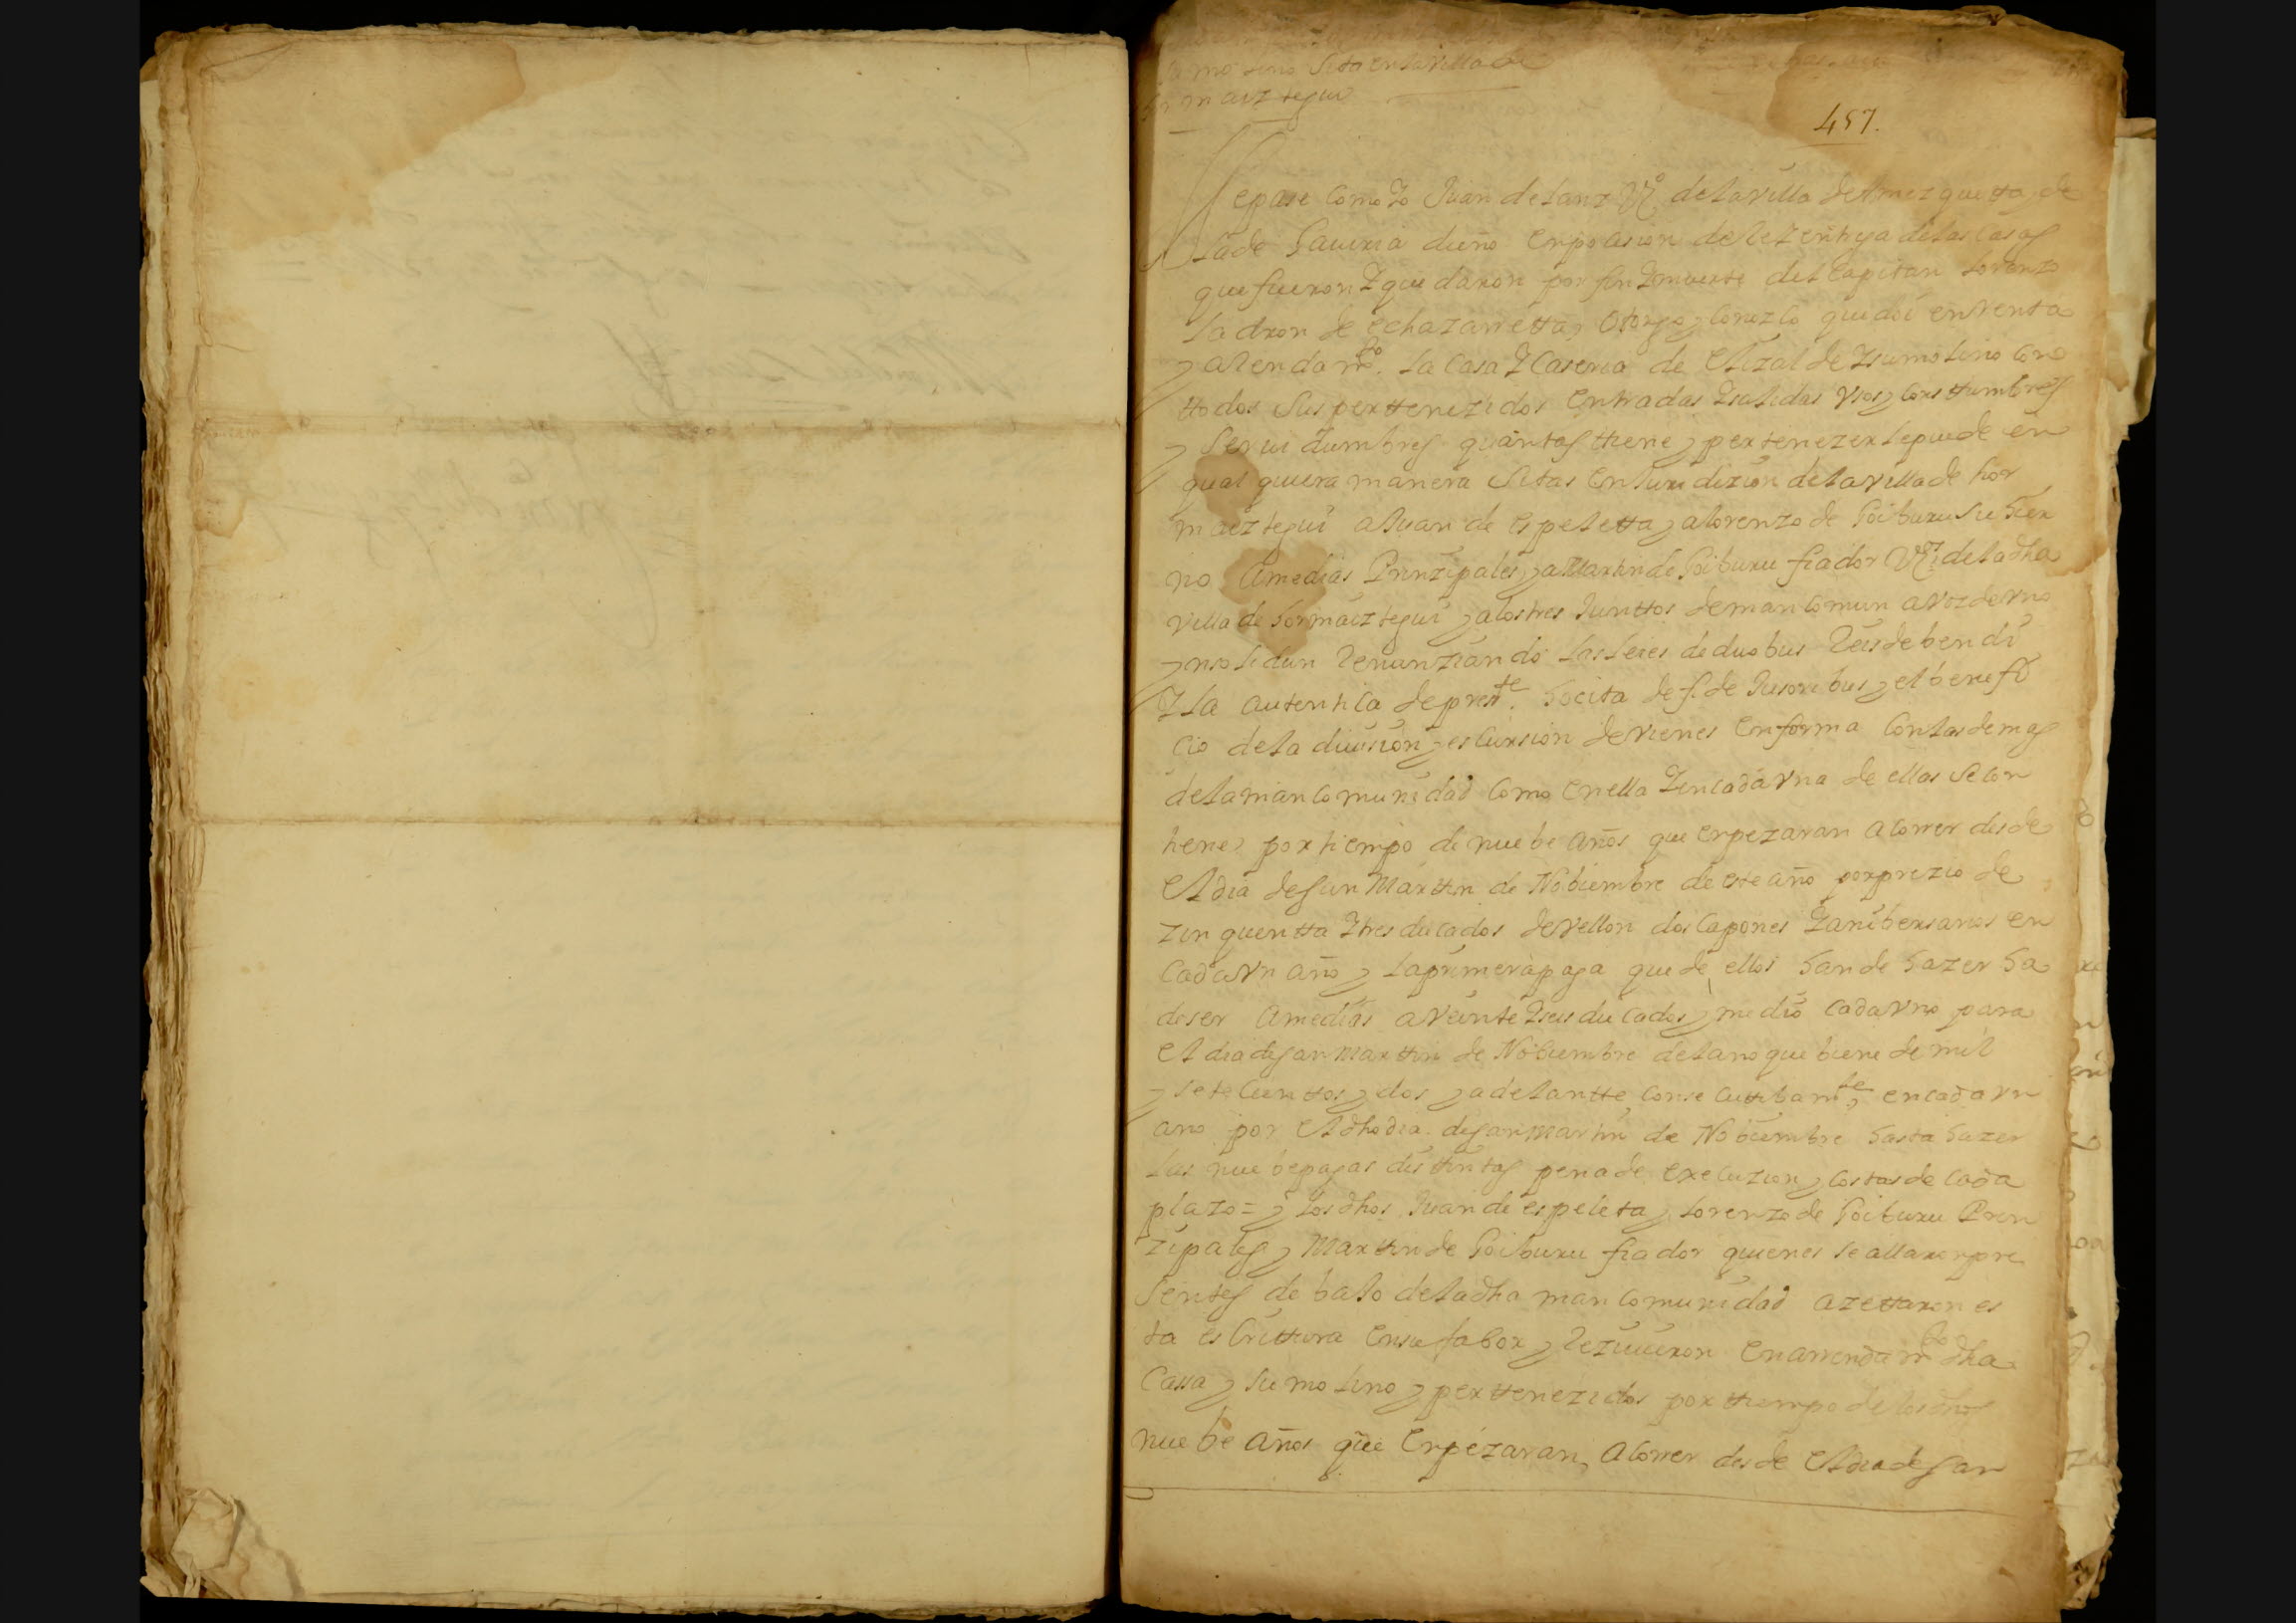 su molino sita en la villa de
hormaiztegui
457.
Sepase como Yo Juan de lanz Vº de la villa de Amezquetta, de
la de Gauiria dueño en posesion de le Zentena de las casas
que fueron Y quedaron por fin Y muerte del Capitan lorenzo
ladron de echazarretta, otorgo, conozco que doi en renta
y arendamto. la casa Y Caseria de Elizalde Y su molino con
ttodos sus perttenezidos entradas Y salidas vsos, consttumbres
y seruidumbres quantas ttiene, pertenezer le puede en
qualquiera manera sitas en Juridizion de la villa de hor
maiztegui a Juan de espeletta, a lorenzo de Goiburu su hier
no amedias Prinzipales, a Martin de Goiburu fiador Vºs de la dha
villa de hormaiztegui, a los tres Junttos de mancomun a voz de vno
ynsolidun Renunziando las leies de duobus Reis debendi
Y la autentica de preste. hocita de f. de Jusoribus, el benefi
cio de la diuision, escursion de vienes en forma con las demas
de la mancomunidad como en ella Y en cada vna de ellas se con
tiene, por tiempo de nuebe años que enpezaran a correr desde
el dia de san Marttin de Nobiembre de este año por prezio de
zinquentta Y tres ducados de vellon dos Capones Y anibersarios en
cada vn año, la primera paga que de ellos han de hazer ha
de ser amedias a veinte Y seis ducados, medio cada vno para
el dia de san marttin de Nobiembre del ano que biene de mil
y setecienttos, dos, adelantte consecuttibamte, en cada vn
ano por el dho dia de san martin de Nobiembre hasta hazer
las nuebe pagas disttintas pena de execuzion, costas de cada
plazo =, los dhos Juan de espeleta, lorenzo de Goiburu Prin
zipales, Marttin de Goiburu fiador quienes se allaron pre
sentes debaJo de la dha mancomunidad azettaron es
ta escrittura en su fabor, Reziuieron en arrendamto dha
Cassa, su molino, perttenezidos por ttiempo de los dhos
nuebe años que enpezaran, a correr desde el dia de san